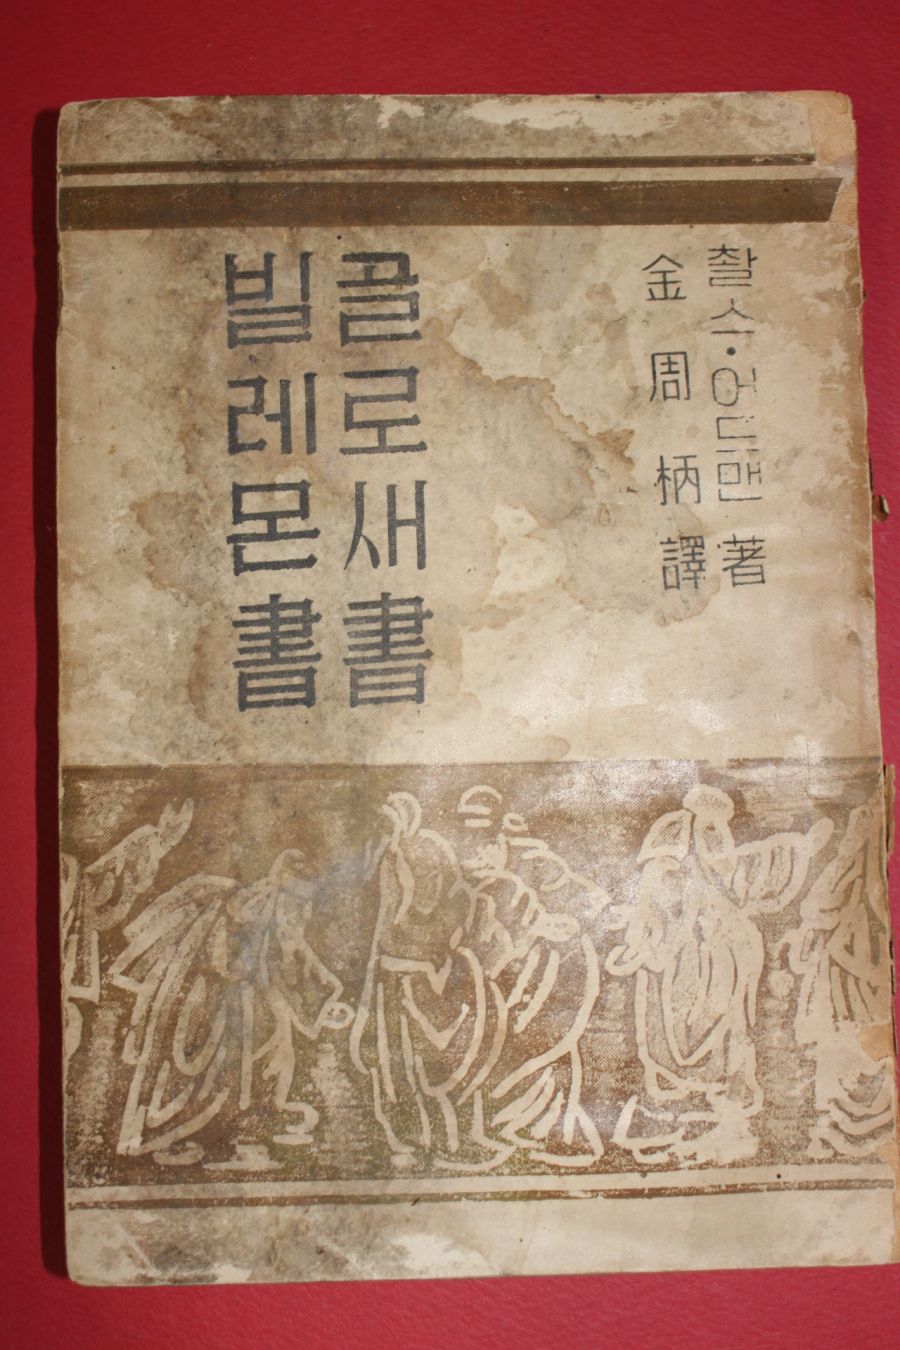 촬스·어드맨 著
金周柄 譯
골로새書
빌레몬書